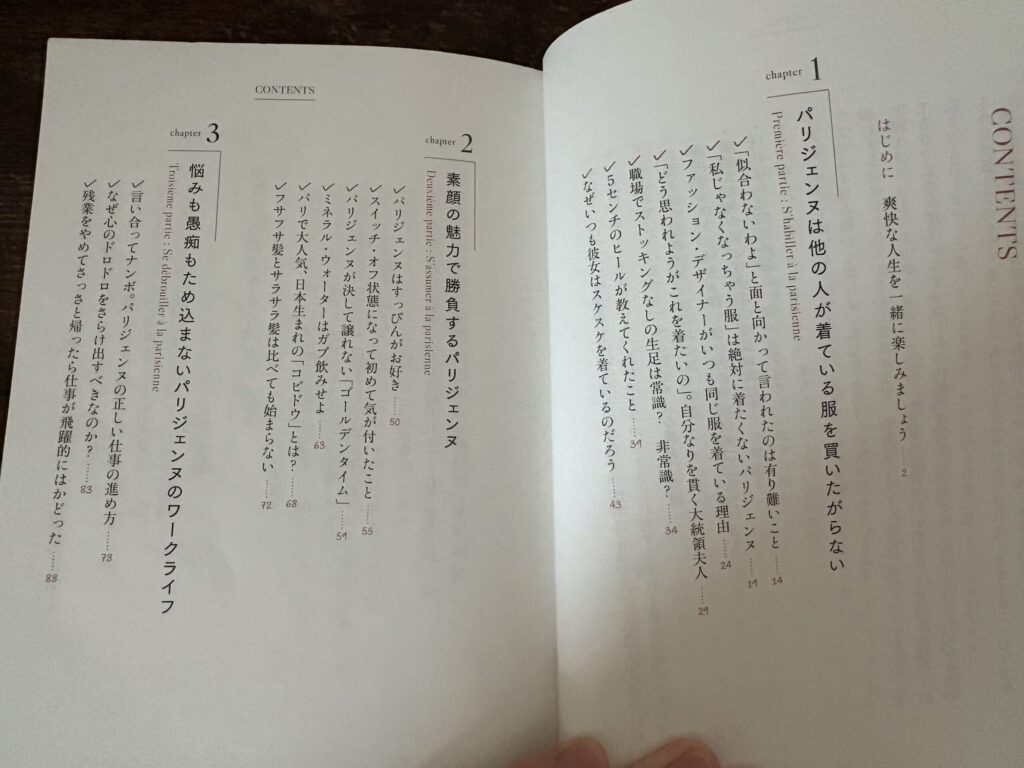 CONTENTS
はじめに　爽快な人生を一緒に楽しみましょう……2
chapter 1
パリジェンヌは他の人が着ている服を買いたがらない
Première partie : S'habiller à la parisienne
✓「似合わないわよ」と面と向かって言われたのは有り難いこと……14
✓「私じゃなくなっちゃう服」は絶対に着たくないパリジェンヌ……19
✓ファッション・デザイナーがいつも同じ服を着ている理由……24
✓「どう思われようがこれを着たいの」。自分なりを貫く大統領夫人……29
✓職場でストッキングなしの生足は常識？　非常識？……34
✓5センチのヒールが教えてくれたこと……39
✓なぜいつも彼女はスケスケを着ているのだろう……43
CONTENTS
chapter 2
素顔の魅力で勝負するパリジェンヌ
Deuxième partie : S'assumer à la parisienne
✓パリジェンヌはすっぴんがお好き……50
✓スイッチ・オフ状態になって初めて気が付いたこと……55
✓パリジェンヌが決して譲れない「ゴールデンタイム」……59
✓ミネラル・ウォーターはガブ飲みせよ……63
✓パリで大人気、日本生まれの「コビドウ」とは？……68
✓フサフサ髪とサラサラ髪は比べても始まらない……72
chapter 3
悩みも愚痴もため込まないパリジェンヌのワークライフ
Troisième partie : Se débrouiller à la parisienne
✓言い合ってナンボ。パリジェンヌの正しい仕事の進め方……78
✓なぜ心のドロドロをさらけ出すべきなのか？……83
✓残業をやめてさっさと帰ったら仕事が飛躍的にはかどった……88